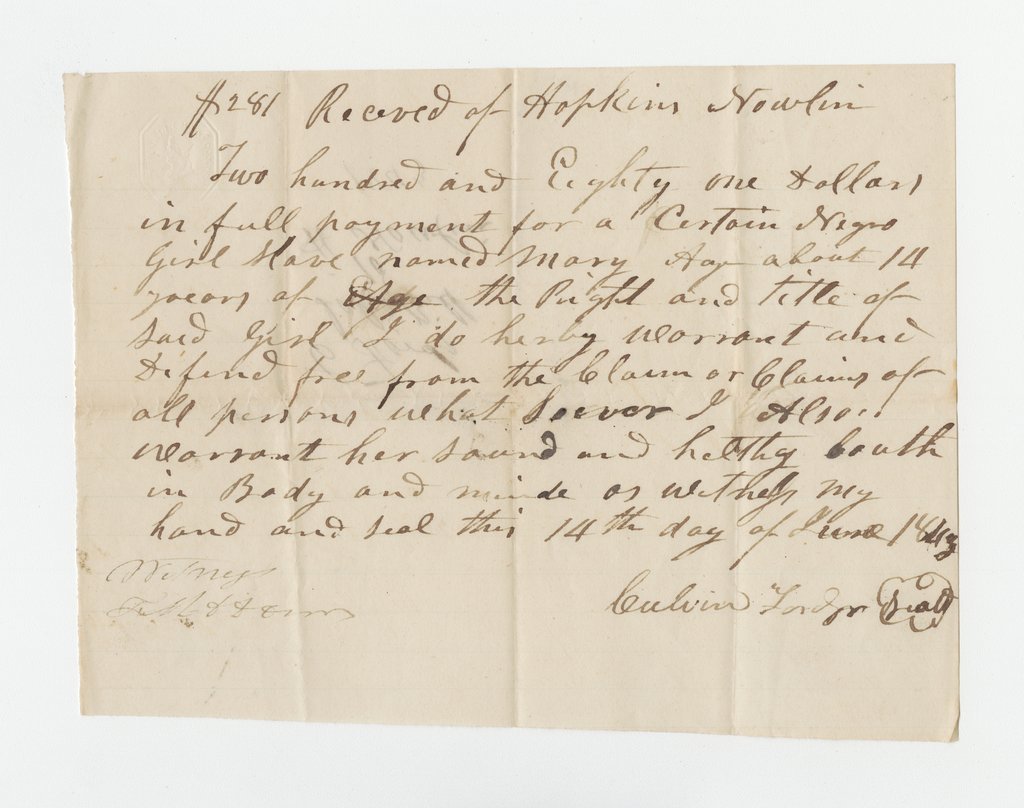 $281 Receved of Hopkins Nowlin
Two hundred and Eighty one Dollars
in full payment for a Certain Negro
Girl Slave named Mary Age about 14
years of Age the Right and title of
said Girl I do herby warrant and
Difend free from the Claim or Claims of
all persons what soever I Also
warrant her sound and helthy bouth
in Body and minde as witness my
hand and seal this 14th day of June 18
Witness
Calvin Seal